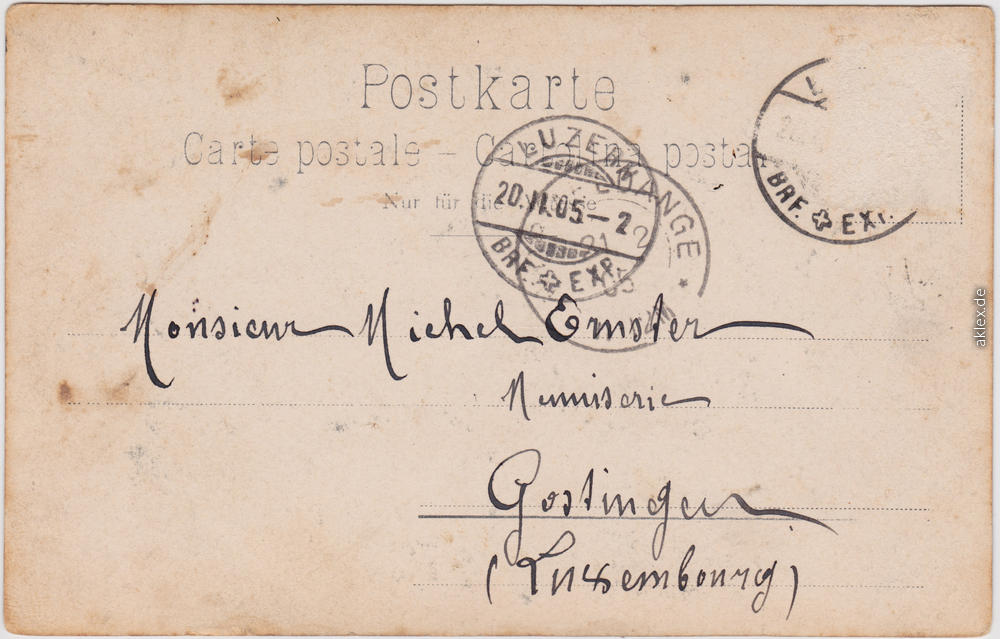 Postkarte
Carte postale – postale
Nur für die
LUZERN
20.II.05–2
BRF. EXP.
ANGE
21 2
05
BRF. EXP.
Monsieur Michel Ernster
Menuiserie
Gostingen
(Luxembourg)
aklex.de